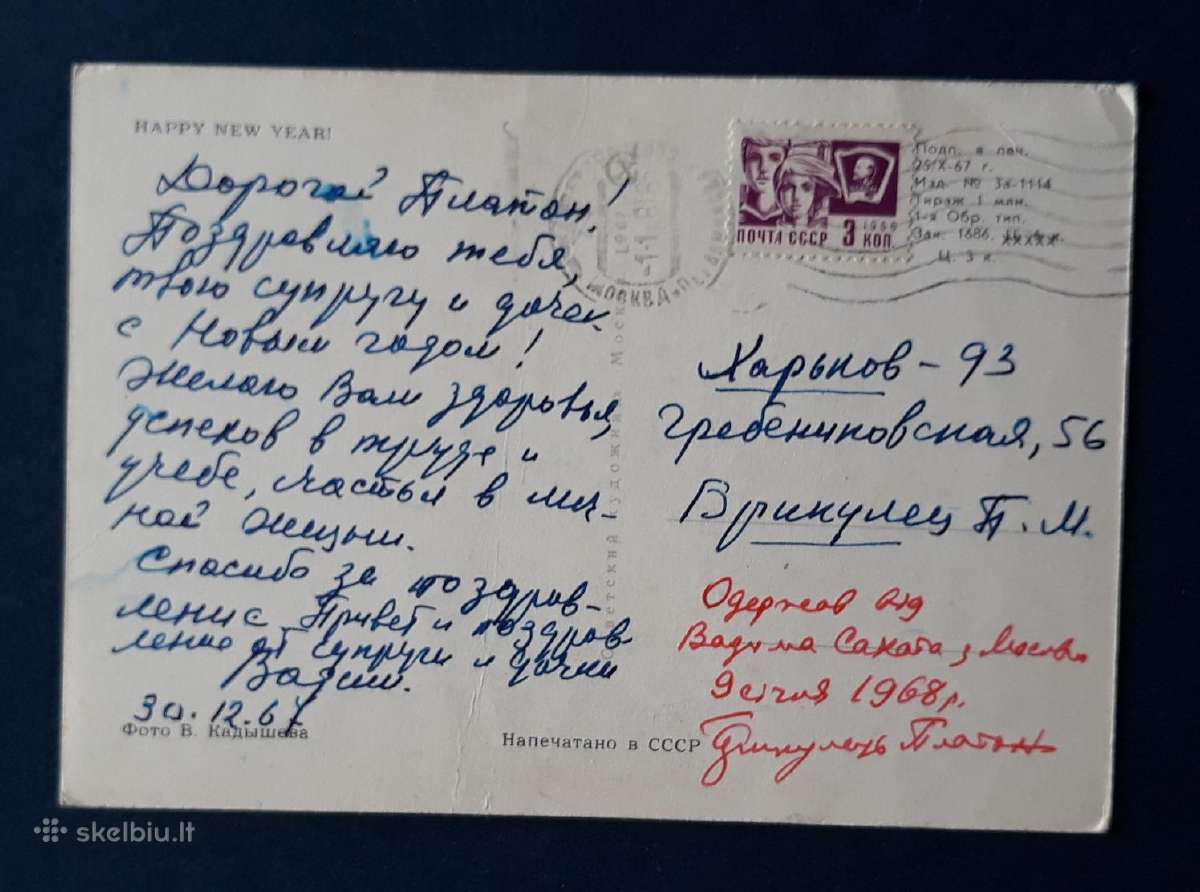 HAPPY NEW YEAR!
Дорогой Платон!
Поздравляю тебя,
твою супругу и дочек
с Новым годом!
Желаю Вам здоровья,
успехов в труде и
учебе, счастья в лич-
ной жизни.
Спасибо за поздрав-
ление. Привет и поздрав-
ление от супруги и дочки
Вадим.
30.12.67
Фото В. Кадышева
Напечатано в СССР
Советский художник Москва
МОСКВА
ПОЧТА СССР 3 КОП
1966
Подп. в печ.
25/X-67 г.
Изд. № 3а-1114
Тираж 1 млн.
1-я Обр. тип.
Зак. 1686.
Ц. 3 к.
Харьков - 93
Гребенниковская, 56
Врикулец П. М.
Одержав від
Вадима Сахата з Москви
9 січня 1968 р.
Платон
skelbiu.lt